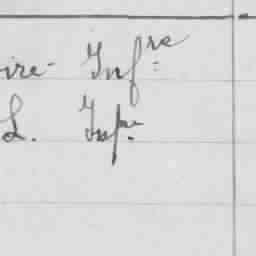 oire- Inf:re
L. Inf:re